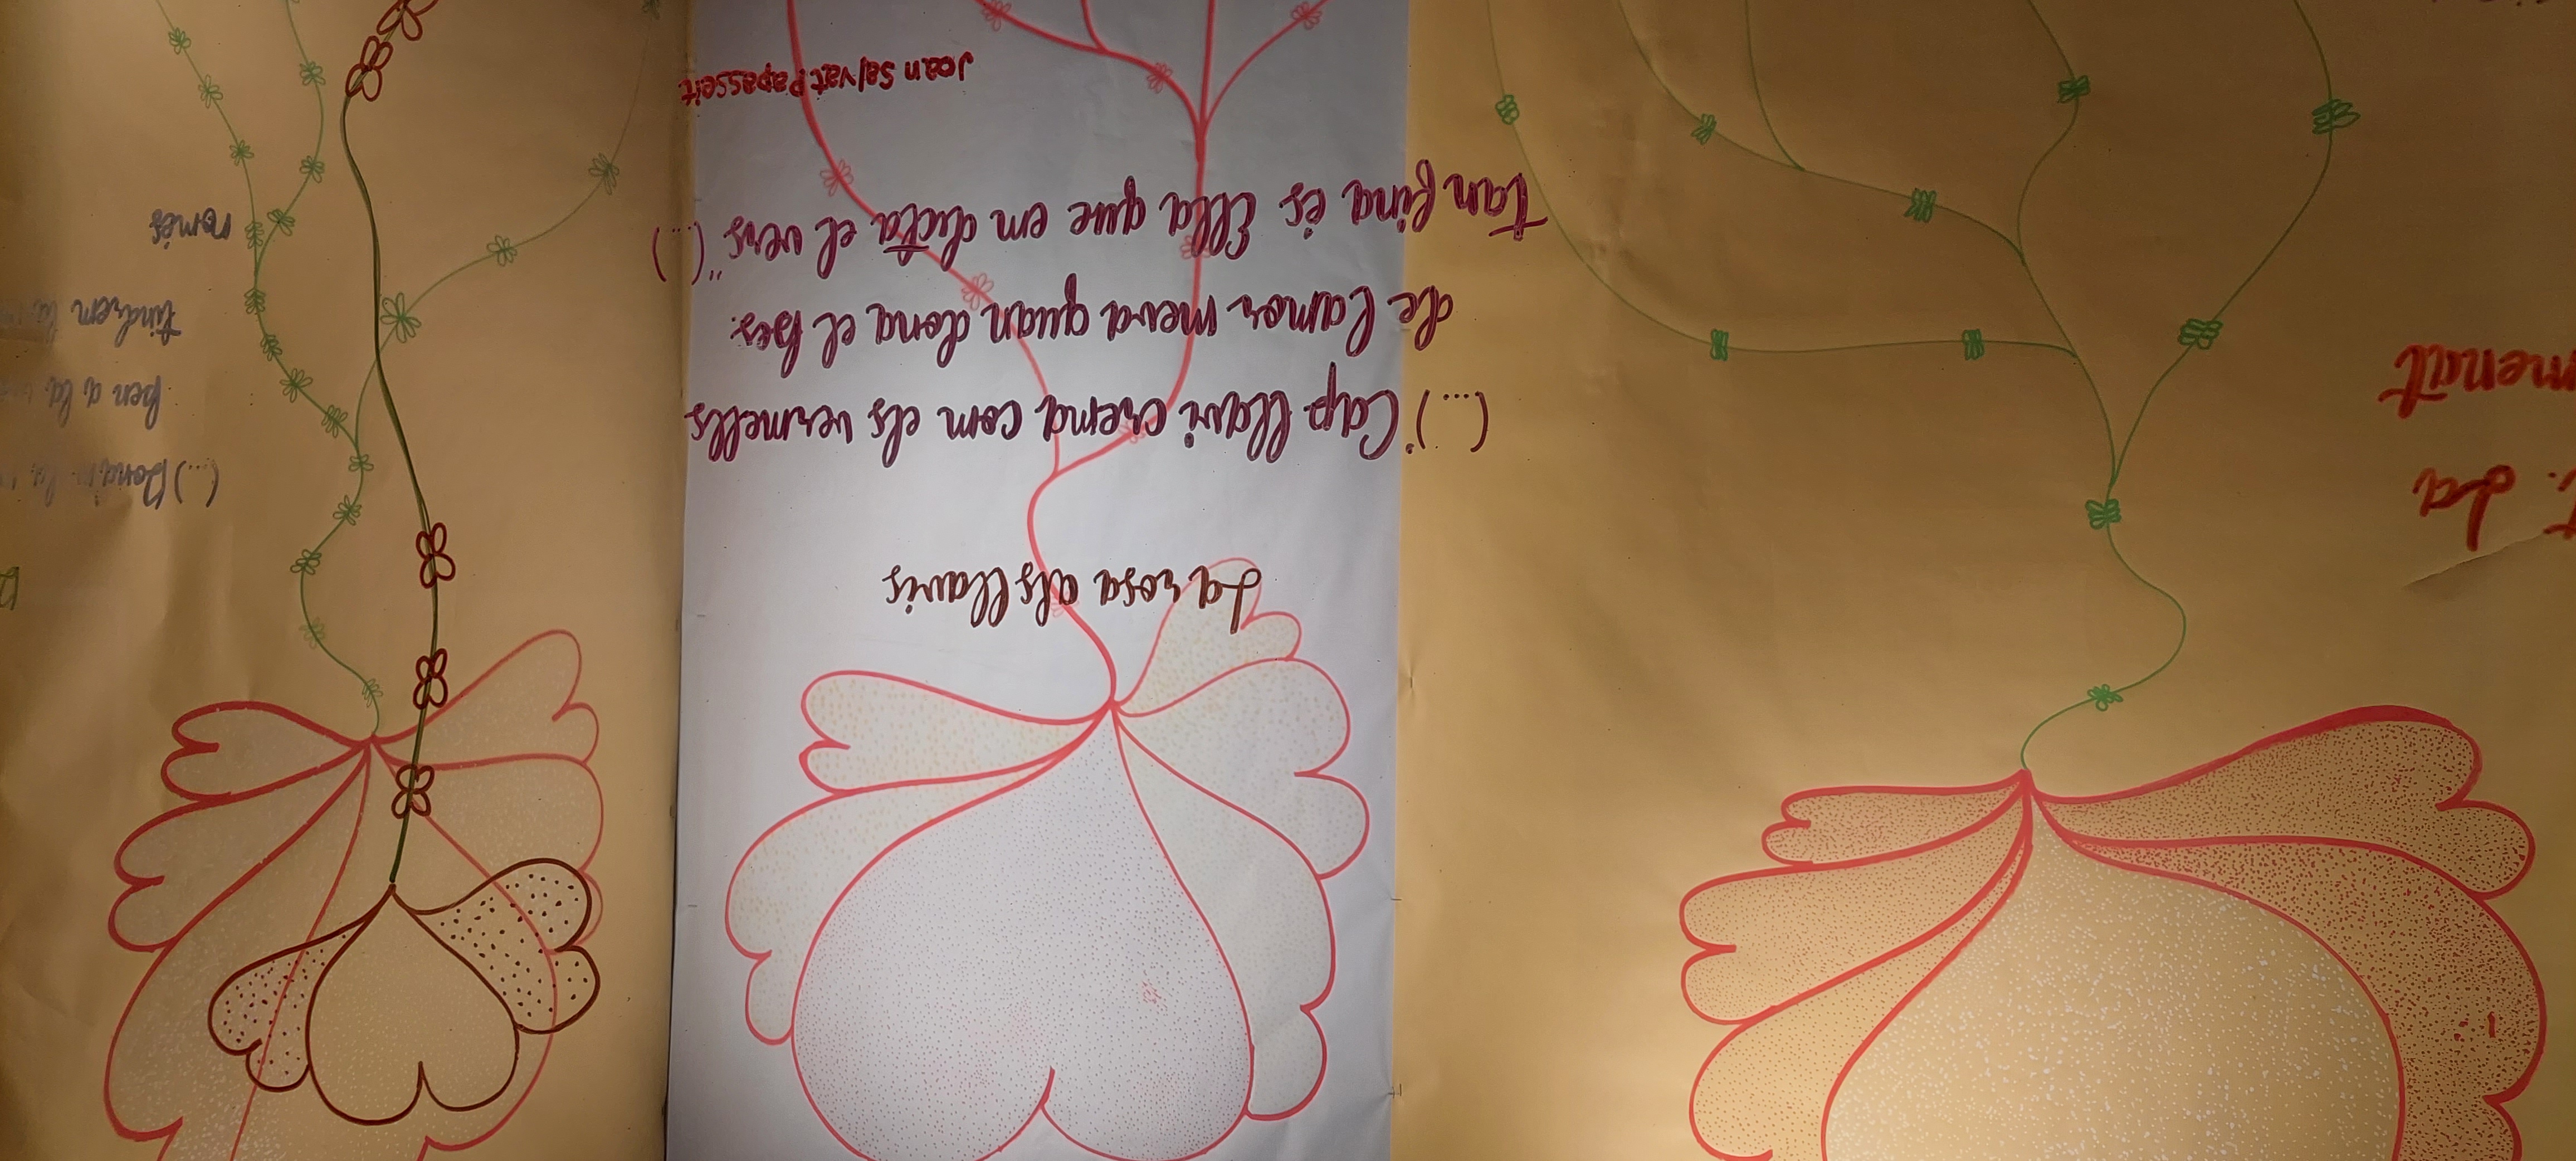 La
menait
La rosa als llavis
(...)"Cap llavi crema com els vermells
de l'amor meva quan dona el bes:
tan fina és Ella que em dicta el vers"(...)
Joan Salvat Papasseit
(...)
per a la
tindrem la
només